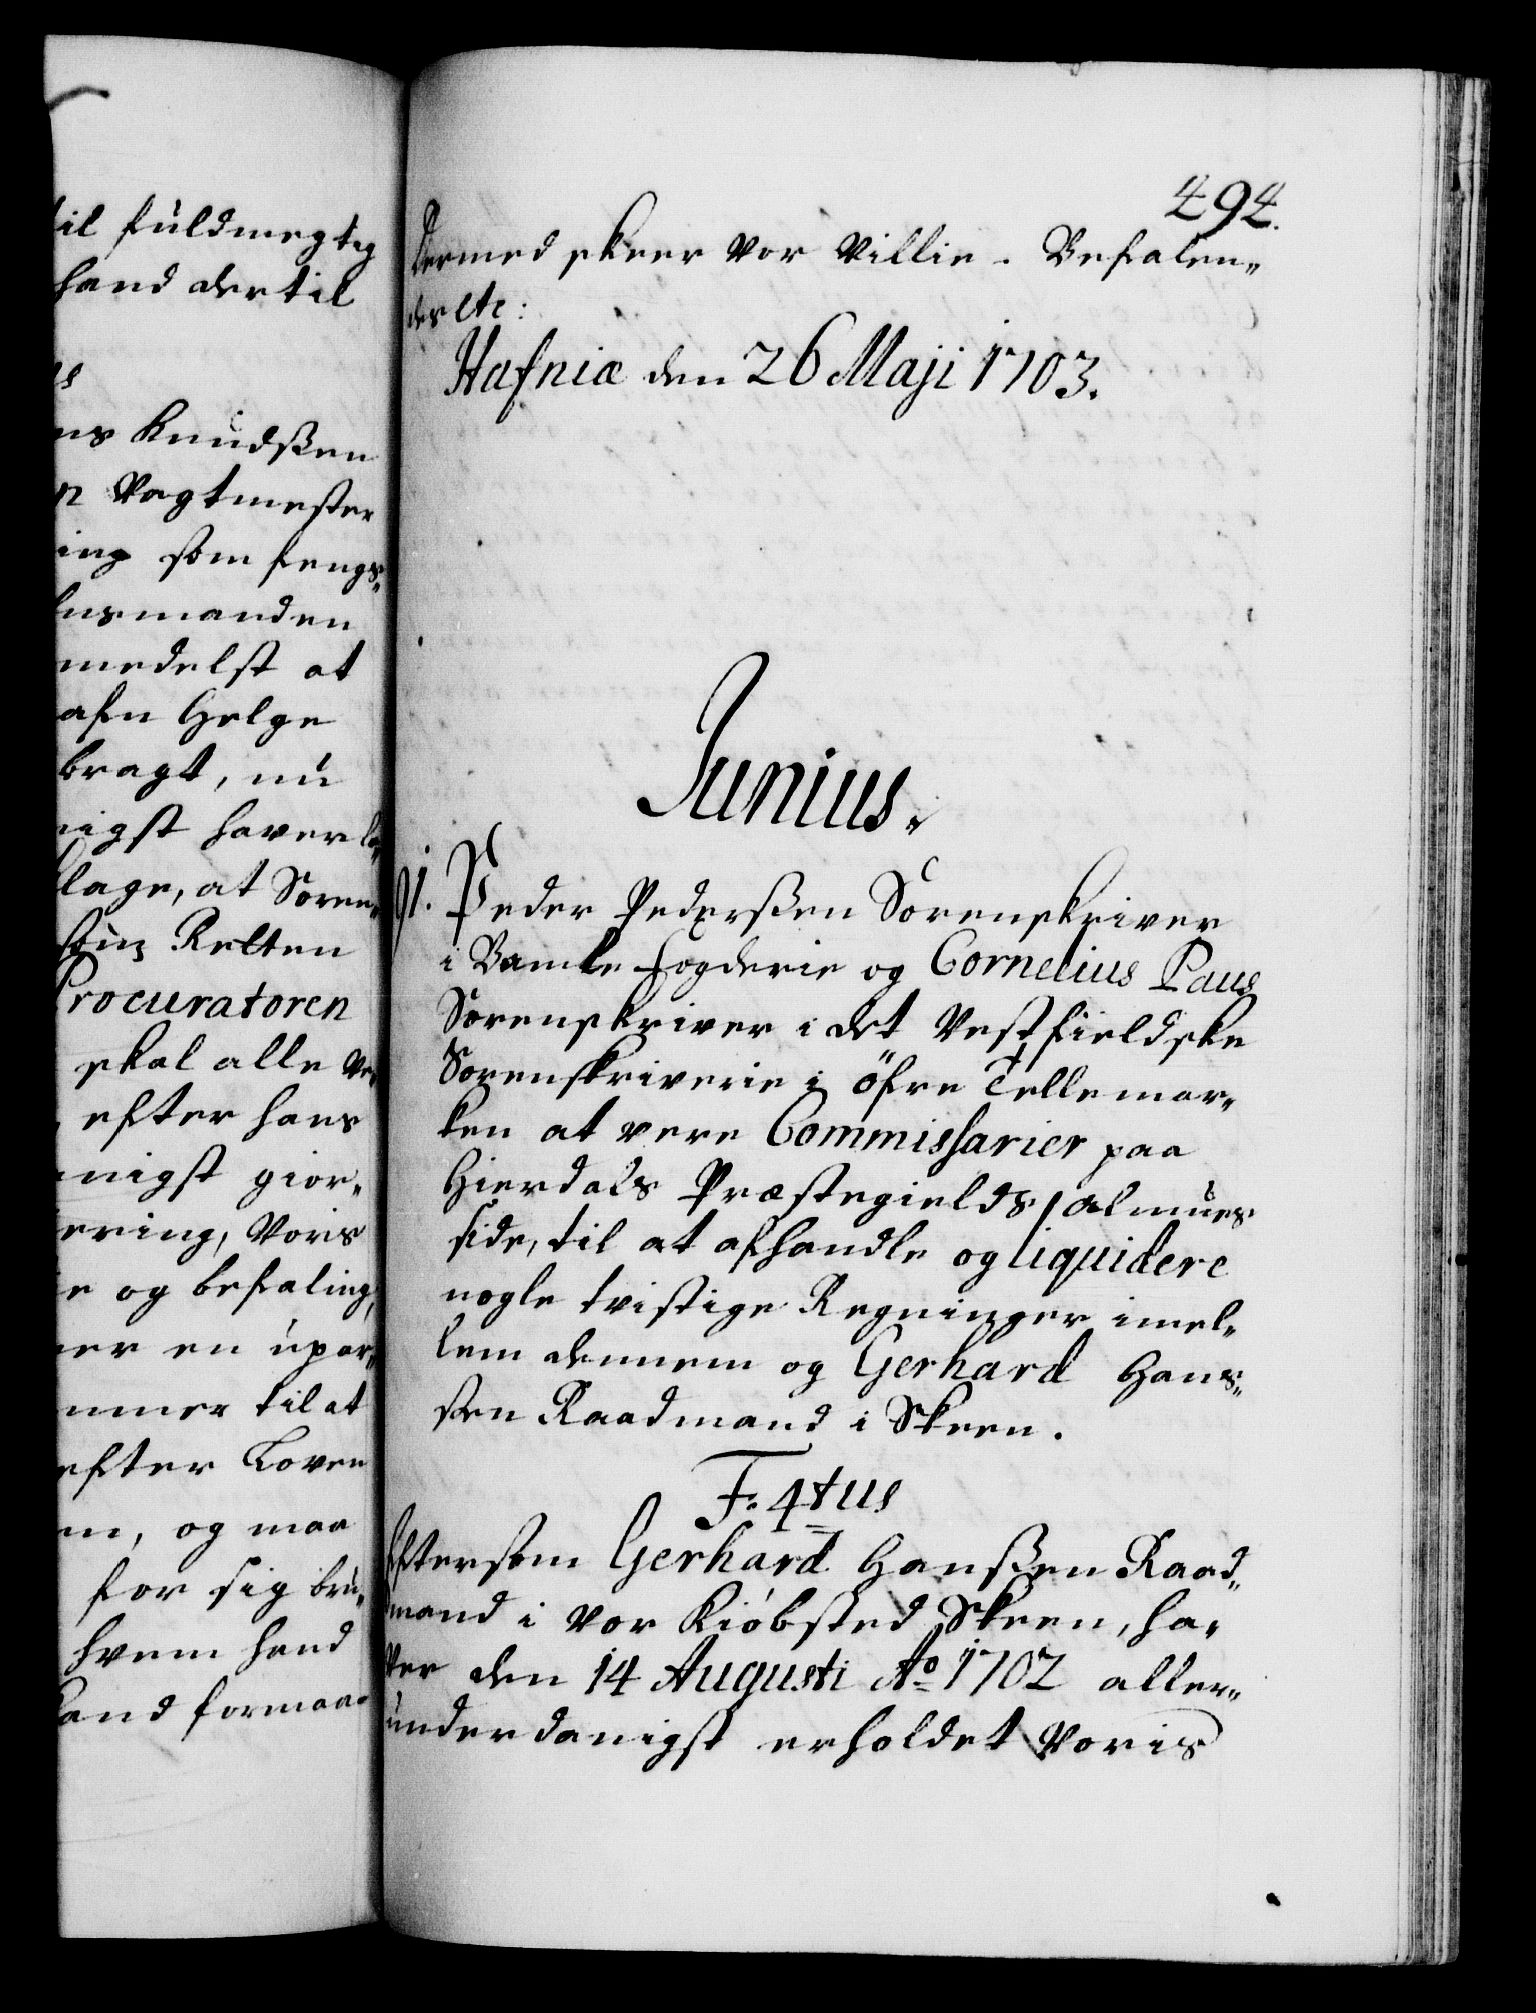 til fuldmegtig
hand dertil
ns Knudssen
Vagtmester
ing som fengs„
lensmanden
medelst at
Helge
bragt, nu
nigst haver la„
lage, at Soren„
Retten
Procuratoren
skal alle ve„
efter hans
nigst gior„
ering, Voris
e og befaling,
er en upar„
mmer til at
efter Loven
m, og maa
for sig bru„
hvem hand
hand formaa„
494.
Dermed skeer Vor Villie. Befalen„
des etc:
Hafniæ den 26 Maji 1703.
Junius.
91. Peder Pederssen Sorenskriver
i Bamle fogderie og Cornelius Paus
Sorenskriver i det Vestfieldske
Sorenskriverie i öfre Tellemar„
ken at vere Commissarier paa
Hierdals Præstegields almues
side, til at afhandle og liquidere
nogle tvistige Regninger imel„
lem dennem og Gerhard Hans„
sen Raadmand i Skeen.
F. 4tus
Eftersom Gerhard Hanssen Raad„
mand i Vor Kiöbsted Skeen, ha„
ver den 14 Augusti Ao 1702 aller„
underdanigst erholdet Voris